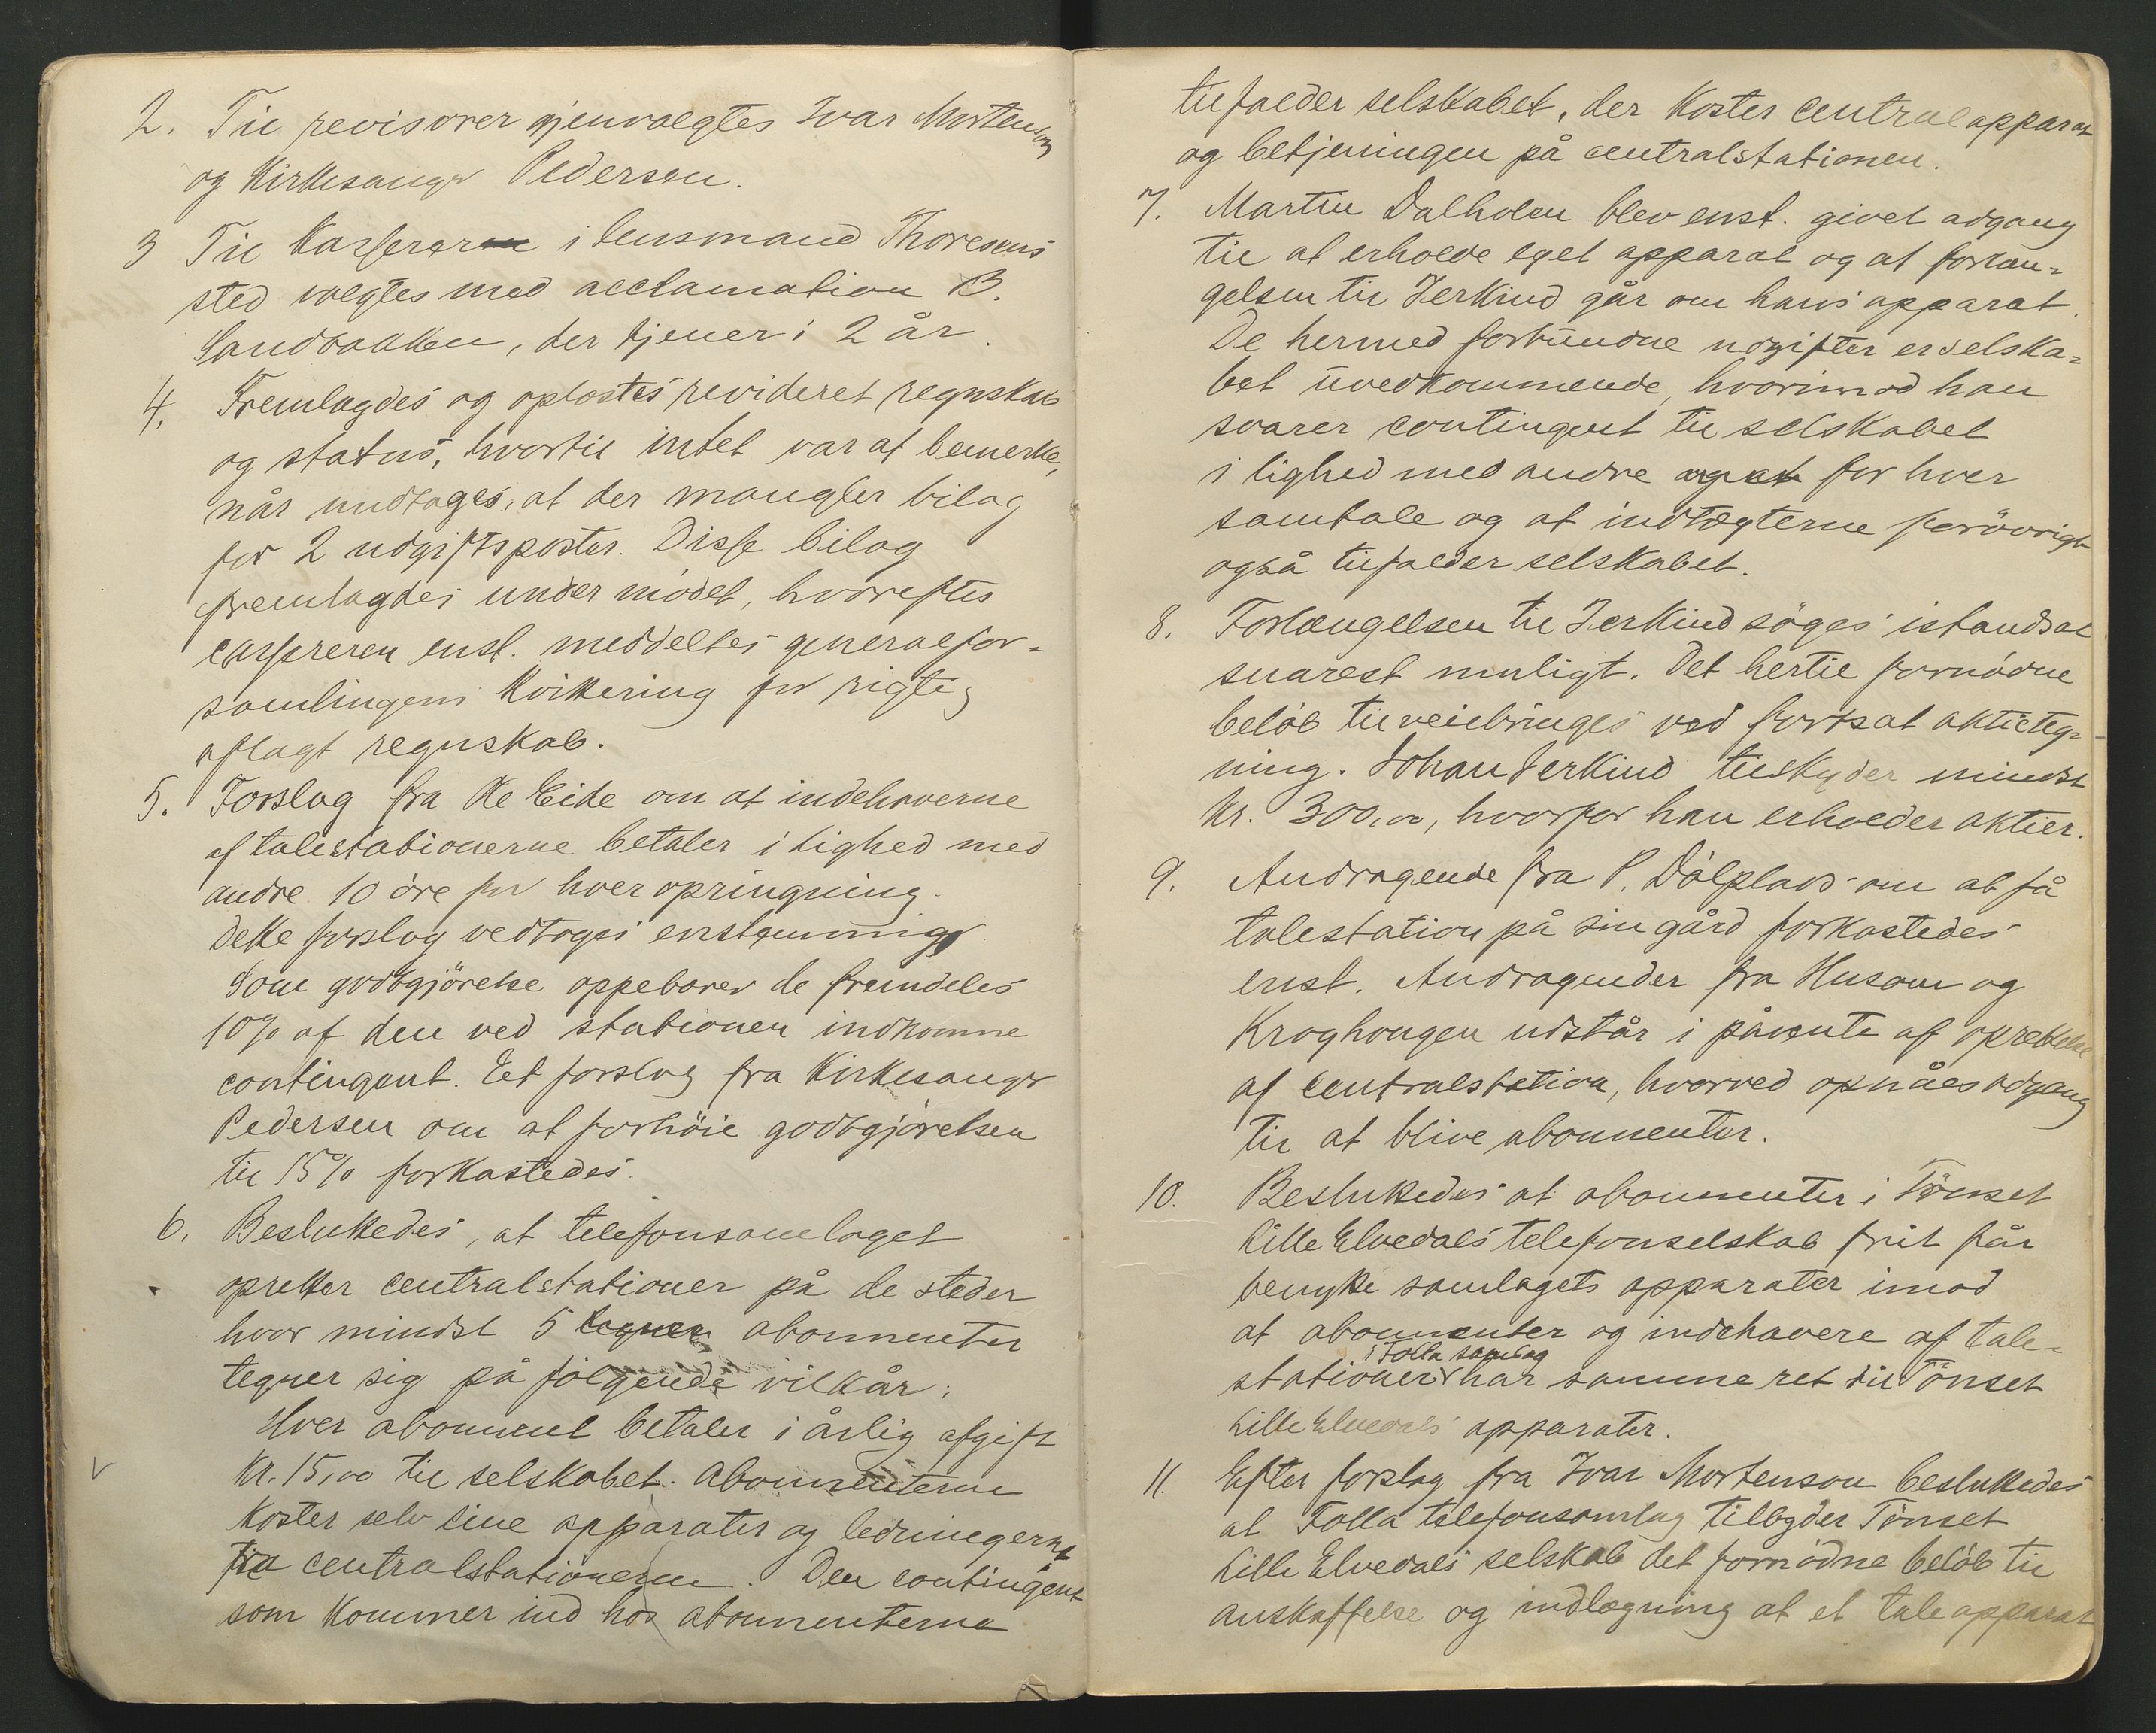 2. Til revisorer gjenvalgtes Ivar Mortenson
og Kirkesanger Pedersen.
3 Til Kasserer i lensmand Thoresens
sted valgtes med acclamation B.
Sandbakken, der tjener i 2 år.
4. Fremlagdes og oplæstes revideret regnskab
og status, hvortil intet var at bemerke,
når undtages, at der mangler bilag
for 2 udgiftsposter. Disse bilag
fremlagdes under mödet, hvorefter
cassereren enst. meddeltes generalfor-
samlingens Kvittering for rigtig
aflagt regnskab.
5. Forslag fra Ole Eide om at indehaverne
af talestationerne betaler i lighed med
andre 10 öre for hver opringning.
Dette forslag vedtoges enstemmig
Som godtgjörelse oppebærer de fremdeles
10% af den ved stationen indkomne
contingent. Et forslag fra Kirkesanger
Pedersen om at forhöie godtgjörelsen
til 15% forkastedes.
6. Besluttedes, at telefonsamlaget
opretter centralstationer på de steder
hvor mindst 5 tegner abonnenter
tegner sig på fölgende vilkår:
Hver abonnent betaler i årlig afgift
Kr. 15,00 til selskabet. Abonnenterne
Koster selv sine apparater og ledningerne
fra centralstationerne. Den contingent
som Kommer ind hos abonnenterne
tilfalder selskabet, der Koster centralapparat
og betjeningen på centralstationen.
7. Martin Dalholen blev enst. givet adgang
til at erholde eget apparat og at forlæn-
gelsen til Jerkind går om hans apparat.
De hermed forbundne udgifter er selska-
bet uvedkommende, hvorimod han
svarer contingent til selskabet
i lighed med andre for hver
samtale og at indtægterne forövrigt
også tilfalder selskabet.
8. Forlængelsen til Jerkind söges istandsat
snarest muligt. Det hertil fornödne
belöb tilveiebringes ved fortsat aktieteg-
ning. Johan Jerkind tilskyder mindst
Kr. 300,00, hvorfor han erholder aktier.
9. Andragende fra P. Dölplads om at få
talestation på sin gård forkastedes
enst. Andragender fra Husom og
Kroghaugen udstår i påvente af oprettelse
af centralstation, hvorved opnåes adgang
til at blive abonnenter.
10. Besluttedes at abonnenter i Tönset
Lille Elvedals telefonselskab frit får
benytte samlagets apparater imod
at abonnenter og indehavere af tale-
i Folla samlag
stationer har samme ret til Tönset
Lille Elvedals apparater.
11. Efter forslag fra Ivar Mortenson besluttedes
at Folla telefonsamlag tilbyder Tönset
Lille Elvedals selskab det fornödne belöb til
anskaffelse og indlægning af et taleapparat